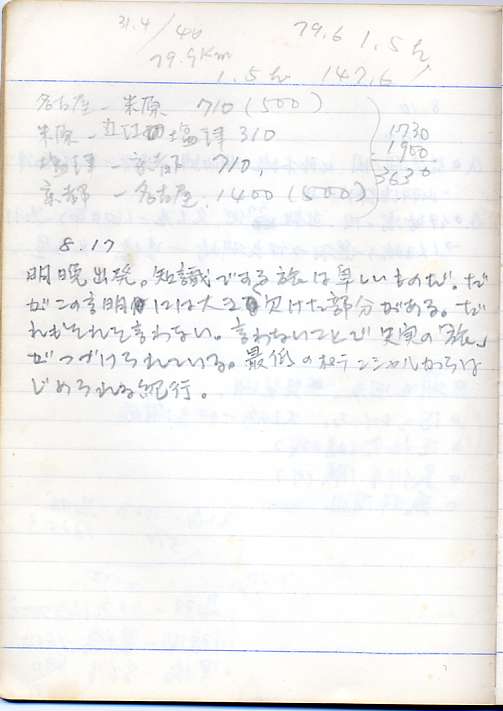 31.4/40
79.6 1.5h
79.9Km
1.5h 147.6
名古屋 - 米原 710 (500)
米原 - 近江塩津 310
塩津 - 京都 710,
京都 - 名古屋 1400 (500)
1730
1900
3630
8.17
明晩出発。知識である旅は卑しいものだ。だ
がこの言明には大きく欠けた部分がある。だ
れもそれを言わない。言わないことで史実の「旅」
がつづけられている。最低のポテンシャルからは
じめられる紀行。